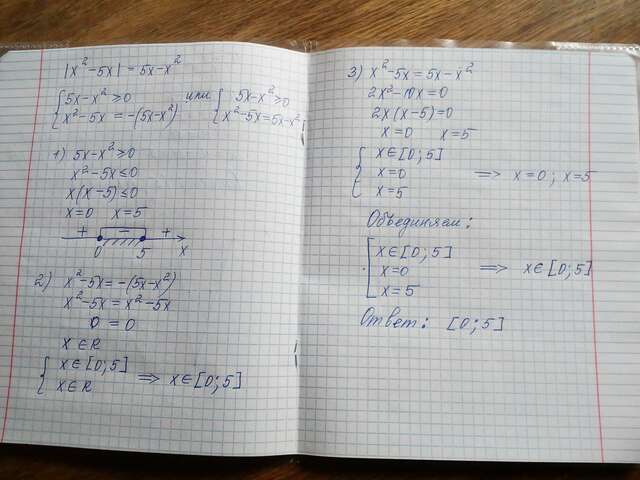 |x²-5x| = 5x-x²
{5x-x²≥0 или {5x-x²≥0
{x²-5x = -(5x-x²) {x²-5x=5x-x²
1) 5x-x²≥0
x²-5x≤0
x(x-5)≤0
x=0 x=5
+ - +
0 5 x
2) x²-5x=-(5x-x²)
x²-5x=x²-5x
0 = 0
x∈R
{x∈[0;5]
{x∈R => x∈[0;5]
3) x²-5x=5x-x²
2x²-10x=0
2x(x-5)=0
x=0 x=5
{x∈[0;5]
{x=0 => x=0; x=5
{x=5
Объединяем:
[x∈[0;5]
[x=0 => x∈[0;5]
[x=5
Ответ: [0;5]